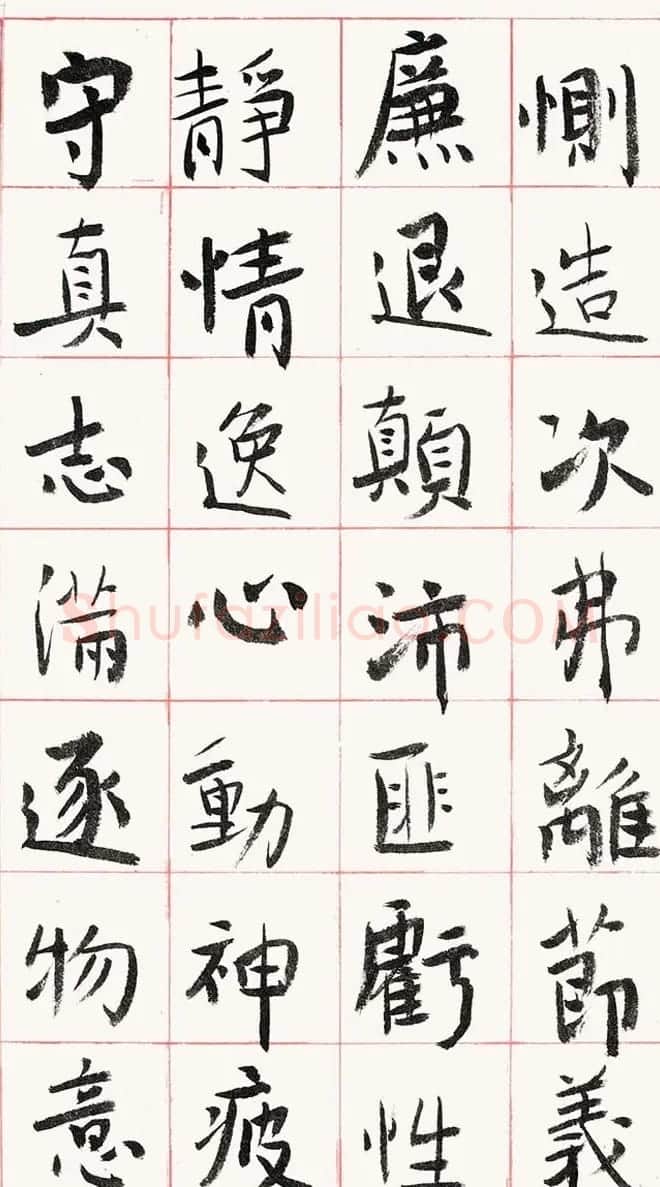 惻造次弗離節義
廉退顛沛匪虧性
靜情逸心動神疲
守真志滿逐物意
Shufaziliao.COM